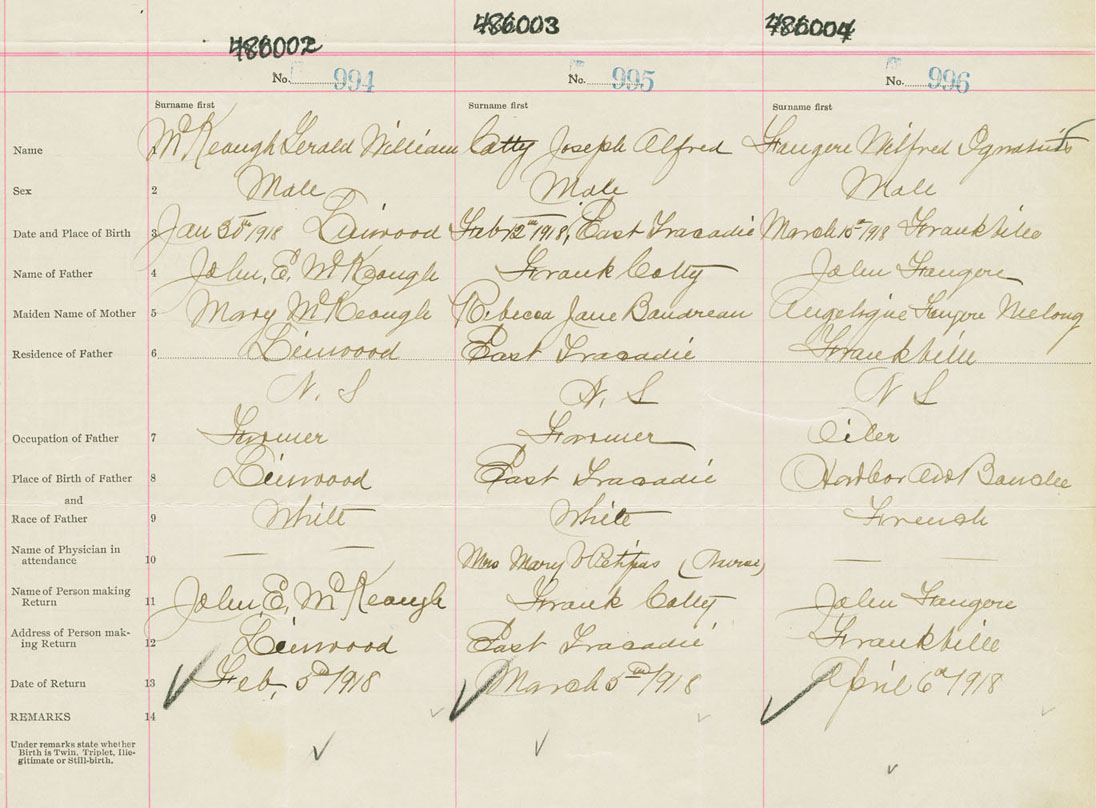 486002 486003 486004
No. 994 No. 995 No. 996
Surname first Surname first Surname first
Name 1 McKeough Gerald William Catty Joseph Alfred Fougere Wilfred Ignatius
Sex 2 Male Male Male
Date and Place of Birth 3 Jan 30th 1918 Linwood Feb 12th 1918, East Tracadie March 15th 1918 Frankville
Name of Father 4 John, E, McKeough Frank Catty John Fougere
Maiden Name of Mother 5 Mary McKeough Rebecca Jane Boudreau Angelique Fougere
Residence of Father 6 Linwood East Tracadie Frankville
N. S N. S N S
Occupation of Father 7 Farmer Farmer
Place of Birth of Father 8 Linwood East Tracadie
and
Race of Father 9 White White French
Name of Physician in
attendance 10 Mrs Mary Petipas (Nurse)
Name of Person making
Return 11 John, E, McKeough Frank Catty John Fougere
Address of Person mak-
ing Return 12 Linwood East Tracadie Frankville
Date of Return 13 Feb, 5th/1918 March 5th/1918 April 6th/1918
REMARKS 14
Under remarks state whether
Birth is Twin, Triplet, Ille-
gitimate or Still-birth.